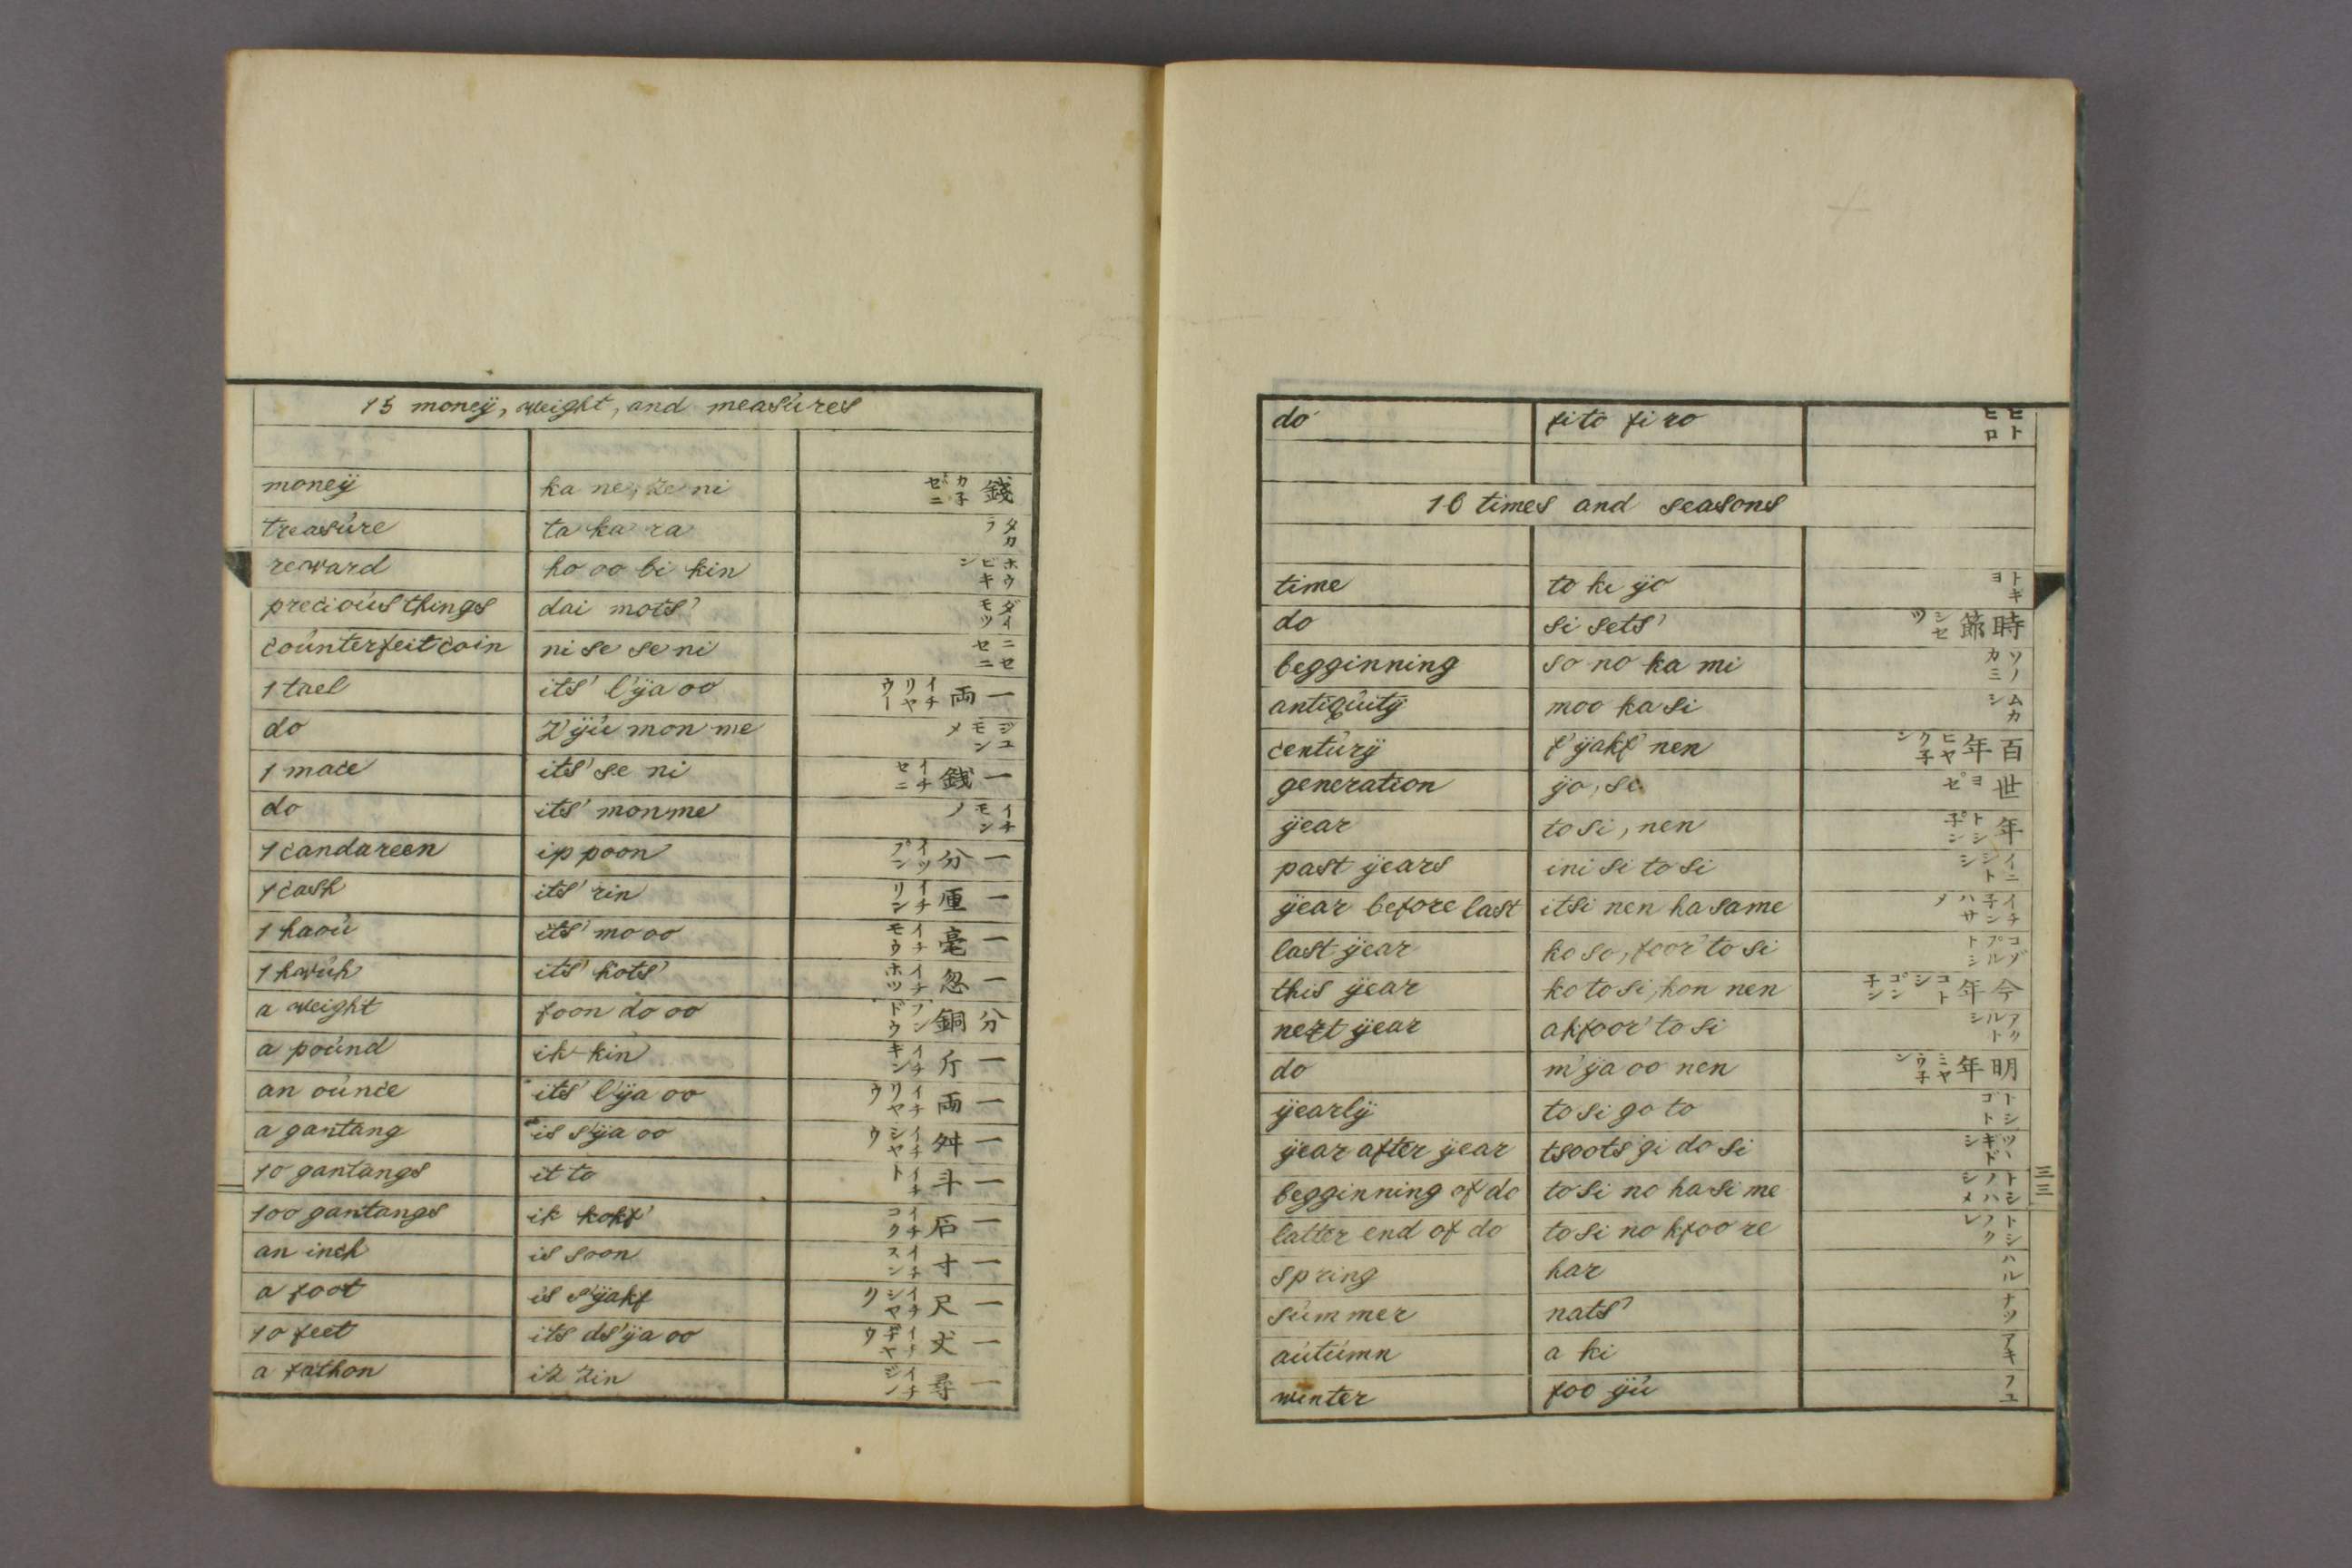 15 moneÿ, weight, and measúres
moneÿ ka ne, ze ni 錢 カ子 ゼニ
treasúre ta ka ra タカラ
reward ho oo bi kin ホウビキン
precioús things dai mots' ダイモツ
coúnterfeit coin ni se se ni ニセセニ
1 tael its' l'ÿa oo 一両 イチリヤウー
do z'ÿú mon me ジユモンメ
1 mace its' se ni 一銭 イチセニ
do its' monme イチモンノ
1 candareen ip poon 一分 イツプン
1 cash its' rin 一厘 イチリン
1 haoú its' mo oo 一毫 イチモウ
1 hwúh its' kots' 一忽 イチホツ
a weight foon do oo 分銅 フンドウ
a poúnd ik kin 一斤 イチキン
an oúnce its' l'ÿa oo 一両 イチリヤウ
a gantang is s'ÿa oo 一舛 イチシヤウ
10 gantangs it to 一斗 イチト
100 gantangs ik kokf' 一石 イチコク
an inch is soon 一寸 イチスン
a foot is s'ÿakf 一尺 イチシヤク
10 feet its ds'ÿa oo 一丈 イチヂヤウ
a fathon iz zin 一尋 イチジン
do fito firo ヒトヒロ
16 times and seasons
time to ki ÿo トキヨ
do si sets' 時節 シセツ
begginning so no ka mi ソノカミ
antiqúitÿ moo ka si ムカシ
centúrÿ f'ÿakf' nen 百年 ヒヤク子ン
generation ÿo, se 世 ヨ セ
ÿear to si, nen 年 トシ 子ン
past ÿears ini si to si イニシトシ
ÿear before last itsi nen ha same イチ子ンハサメ
last ÿear ko so, foor' to si コゾ フルトシ
this ÿear ko to si, kon nen 今年 コトシ コン子ン
next ÿear akfoor' to si アクルトシ
do m'ÿa oo nen 明年 ミヤウ子ン
ÿearlÿ to si go to トシゴト
ÿear after ÿear tsoots'gi do si ツヾギドシ
begginning of do to si no ha si me トシノハシメ
三三
latter end of do to si no kfoo re トシノクレ
spring har ハル
súmmer nats' ナツ
aútúmn a ki アキ
winter foo ÿú フユ